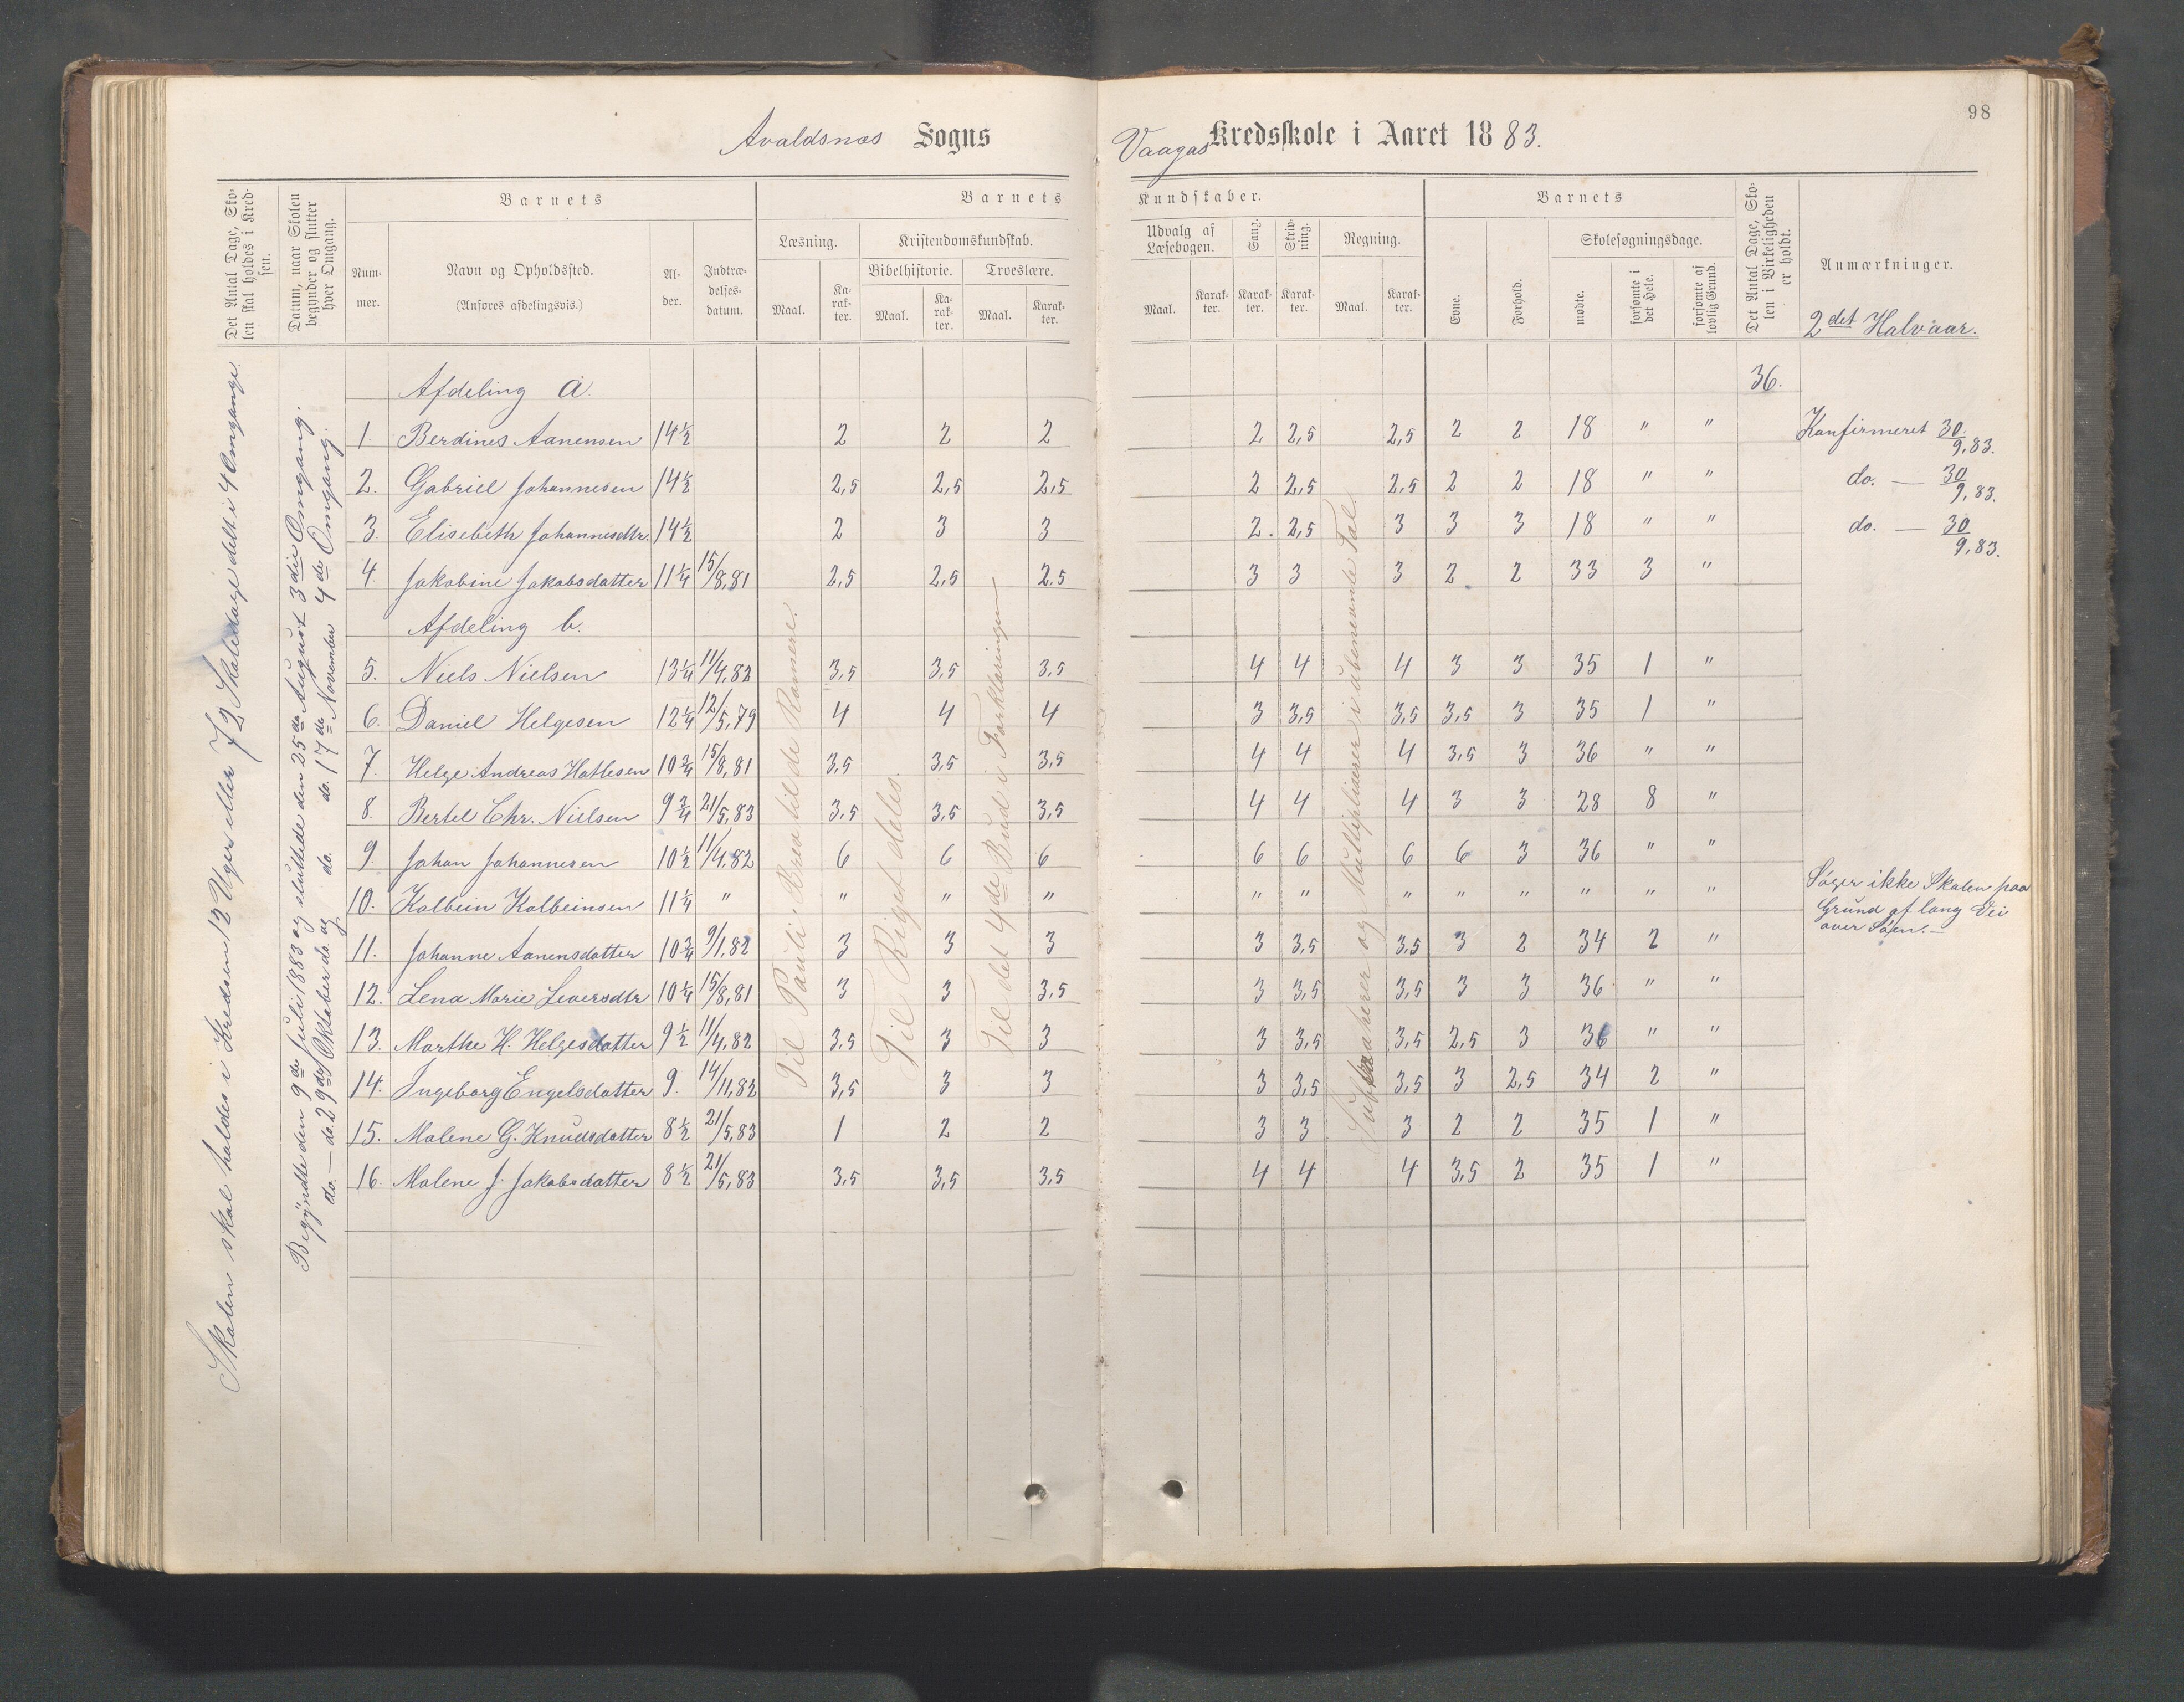 98
Avaldsnæs Sogns
Vaagas Kredsskole i Aaret 1883.
Det Antal Dage, Skolen skal holdes i Kredsen.
Datum, naar Skolen begynder og slutter hver Omgang.
Barnets
Nummer.
Navn og Opholdssted.
(Anføres afdelingsvis.)
Alder.
Indtrædelsesdatum.
Barnets Kundskaber.
Læsning.
Maal.
Karakter.
Kristendomskundskab.
Bibelhistorie.
Maal.
Karakter.
Troeslære.
Maal.
Karakter.
Udvalg af Læsebogen.
Maal.
Karakter.
Sang.
Karakter.
Skrivning.
Karakter.
Regning.
Maal.
Karakter.
Barnets
Evne.
Forhold.
Skolesøgningsdage.
mødte.
forsømte i det Hele.
forsømte af lovlig Grund.
Det Antal Dage, Skolen i Virkeligheden er holdt.
Anmærkninger.
2det Halvaar.
Skolen skal holdes i Kredsen 12 Uger eller 72 Skoledage delt i 4 Omgange.
Begyndte den 9de Juli 1883 og sluttede den 25de August 3die Omgang.
do. — do. 29de Oktober do. og do. do. 17de November 4de Omgang.
Til Pauli Brev til de Romere.
Til Riget deles.
Til det 4de Bud i Forklaringen
Subtraherer og Multipliserer i ubenævnte Tal.
Afdeling a. 36.
1. Berdines Aanensen 14½ 2 2 2 2 2,5 2,5 2 2 18 " " Konfirmeret 30/9,83.
2. Gabriel Johannesen 14½ 2,5 2,5 2,5 2 2,5 2,5 2 2 18 " " do. — 30/9,83.
3. Elisebeth Johannesdtr. 14½ 2 3 3 2. 2,5 3 3 3 18 " " do. — 30/9,83.
4. Jakobine Jakobsdatter 11¼ 15/8,81 2,5 2,5 2,5 3 3 3 2 2 33 3 "
Afdeling b.
5. Niels Nielsen 13¼ 11/4,82 3,5 3,5 3,5 4 4 4 3 3 35 1 "
6. Daniel Helgesen 12¼ 12/5,79 4 4 4 3 3,5 3,5 3,5 3 35 1 "
7. Helge Andreas Hatlesen 10¾ 15/8,81 3,5 3,5 3,5 4 4 4 3,5 3 36 " "
8. Bertel Chr. Nielsen 9¾ 21/5,83 3,5 3,5 3,5 4 4 4 3 3 28 8 "
9. Johan Johannesen 10½ 11/4,82 6 6 6 6 6 6 6 3 36 " "
10. Kolbein Kolbeinsen 11¼ " " " " " " " " " " " " Søger ikke Skolen paa
Grund af lang Vei
over Søen.—
11. Johanne Aanensdatter 10¾ 9/1,82 3 3 3 3 3,5 3,5 3 2 34 2 "
12. Lena Marie Seversdtr 10¼ 15/8,81 3 3 3,5 3 3,5 3,5 3 3 36 " "
13. Marthe H. Helgesdatter 9½ 11/4,82 3,5 3 3 3 3,5 3,5 2,5 3 36 " "
14. Ingeborg Engelsdatter 9. 14/11,82 3,5 3 3 3 3,5 3,5 3 2,5 34 2 "
15. Malene G. Knudsdatter 8½ 21/5,83 1 2 2 3 3 3 2 2 35 1 "
16. Malene J. Jakobsdatter 8½ 21/5,83 3,5 3,5 3,5 4 4 4 3,5 2 35 1 "